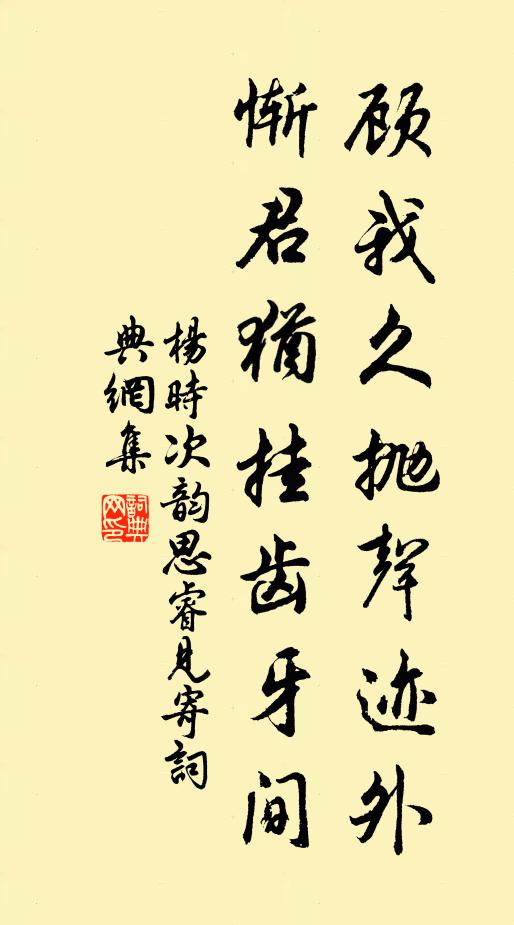 顾我久抛聲迹外
惭君猶挂齿牙间
楊時次韵思睿見寄詞
典網集
詞典网印